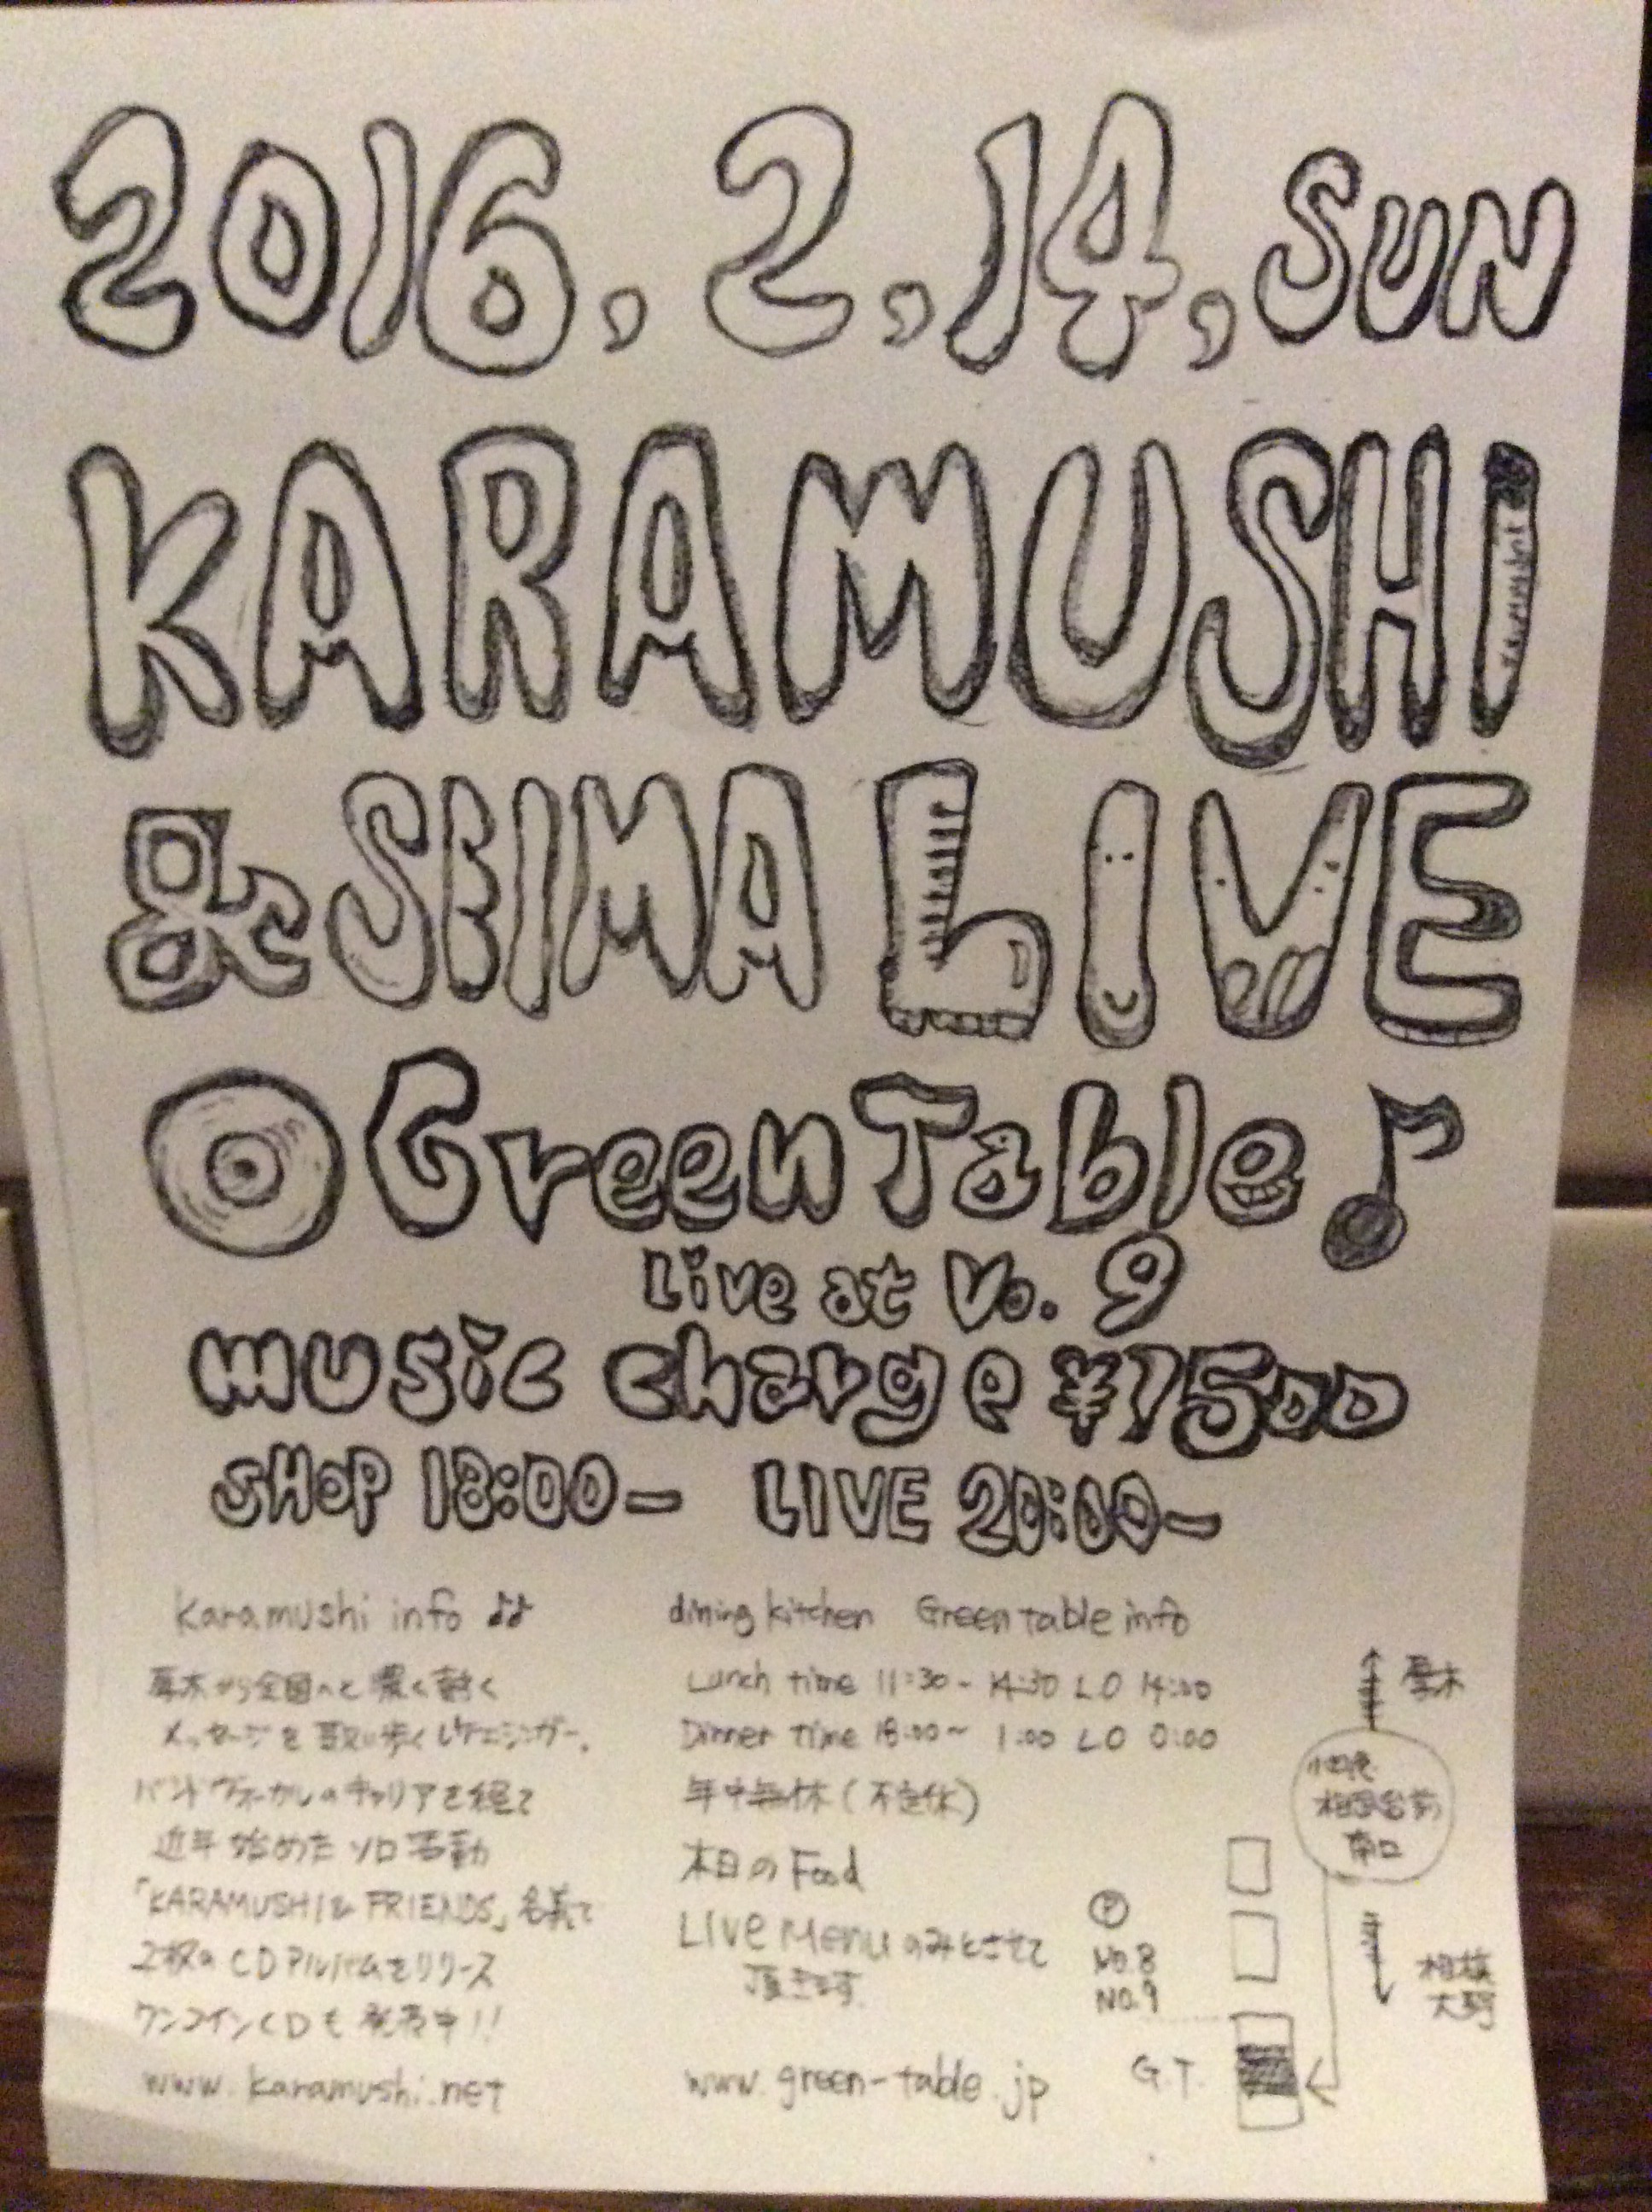 2016, 2, 14, SUN
KARAMUSHI
& SEIMA LIVE
Green Table
Live at Vo. 9
music charge ¥1500
SHOP 18:00− LIVE 20:00−
Karamushi info
厚木から全国へと濃く熱く
メッセージを歌い歩くレゲエシンガー。
バンドヴォーカルのキャリアを経て
近年始めたソロ活動
「KARAMUSHI & FRIENDS」名義で
2枚のCDアルバムをリリース
ワンコインCDも発売中!!
www.karamushi.net
dining kitchen Green table info
Lunch time 11:30~14:30 LO 14:00
Dinner Time 18:00~ 1:00 LO 0:00
年中無休(不定休)
本日のFood
LIVE Menuのみとさせて
頂きます
www.green-table.jp
厚木
小田急
相武台前
南口
P
NO.8
NO.9
相模
大野
G.T.